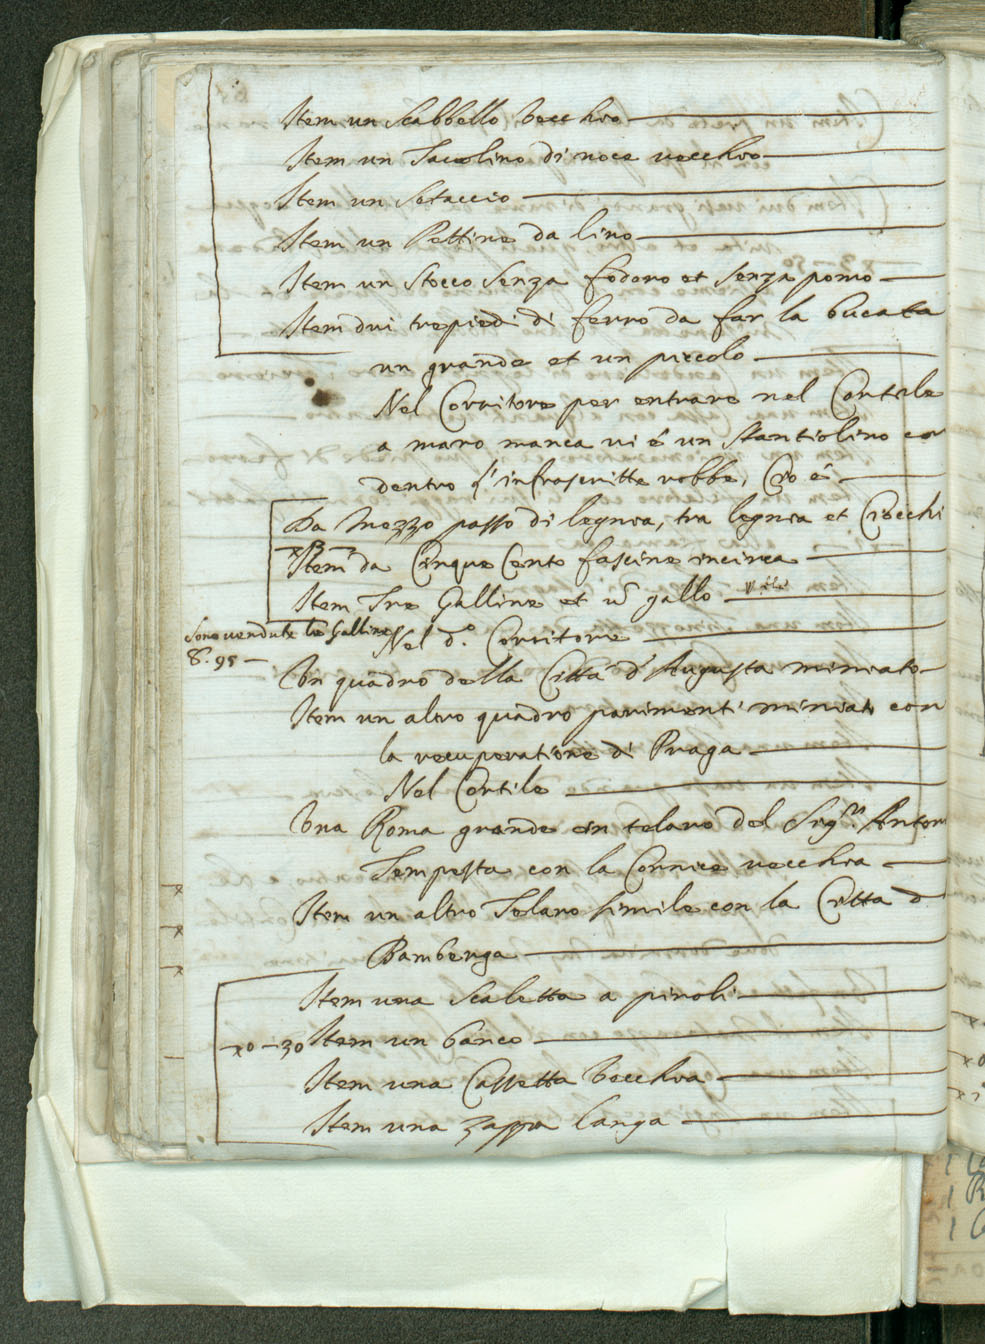 Item un Scabbello vecchio
Item un Tavolino di noce vecchio
Item un Setaccio
Item un Pettine da lino
Item un Stocco senza fodero et senza pomo
Item dui trepiedi di ferro da far la bucata
un grande et un piccolo
Nel Corritore per entrare nel Cortile
a mano manca vi é un Stantiolino con
dentro l'infrascritte robbe, Cio é
Da mezzo passo di legnia, tra legnia et Ciocchi
Item da Cinque Cento fascine incirca
Item Tre Galline et un gallo
Sono vendute le Galline
8. 95
Nel d.o Corritore
Un quadro della Città d'Augusta miniato
Item un altro quadro parimenti miniato con
la recuperatione di Praga
Nel Cortile
Una Roma grande in telaro del Sig.r Anton
Tempesta con la Cornice vecchia
Item un altro Telaro simile con la Citta d
Bamberga
Item una Scaletta a piroli
x0 - 30 Item un banco
Item una Cassetta vecchia
Item una zappa langa